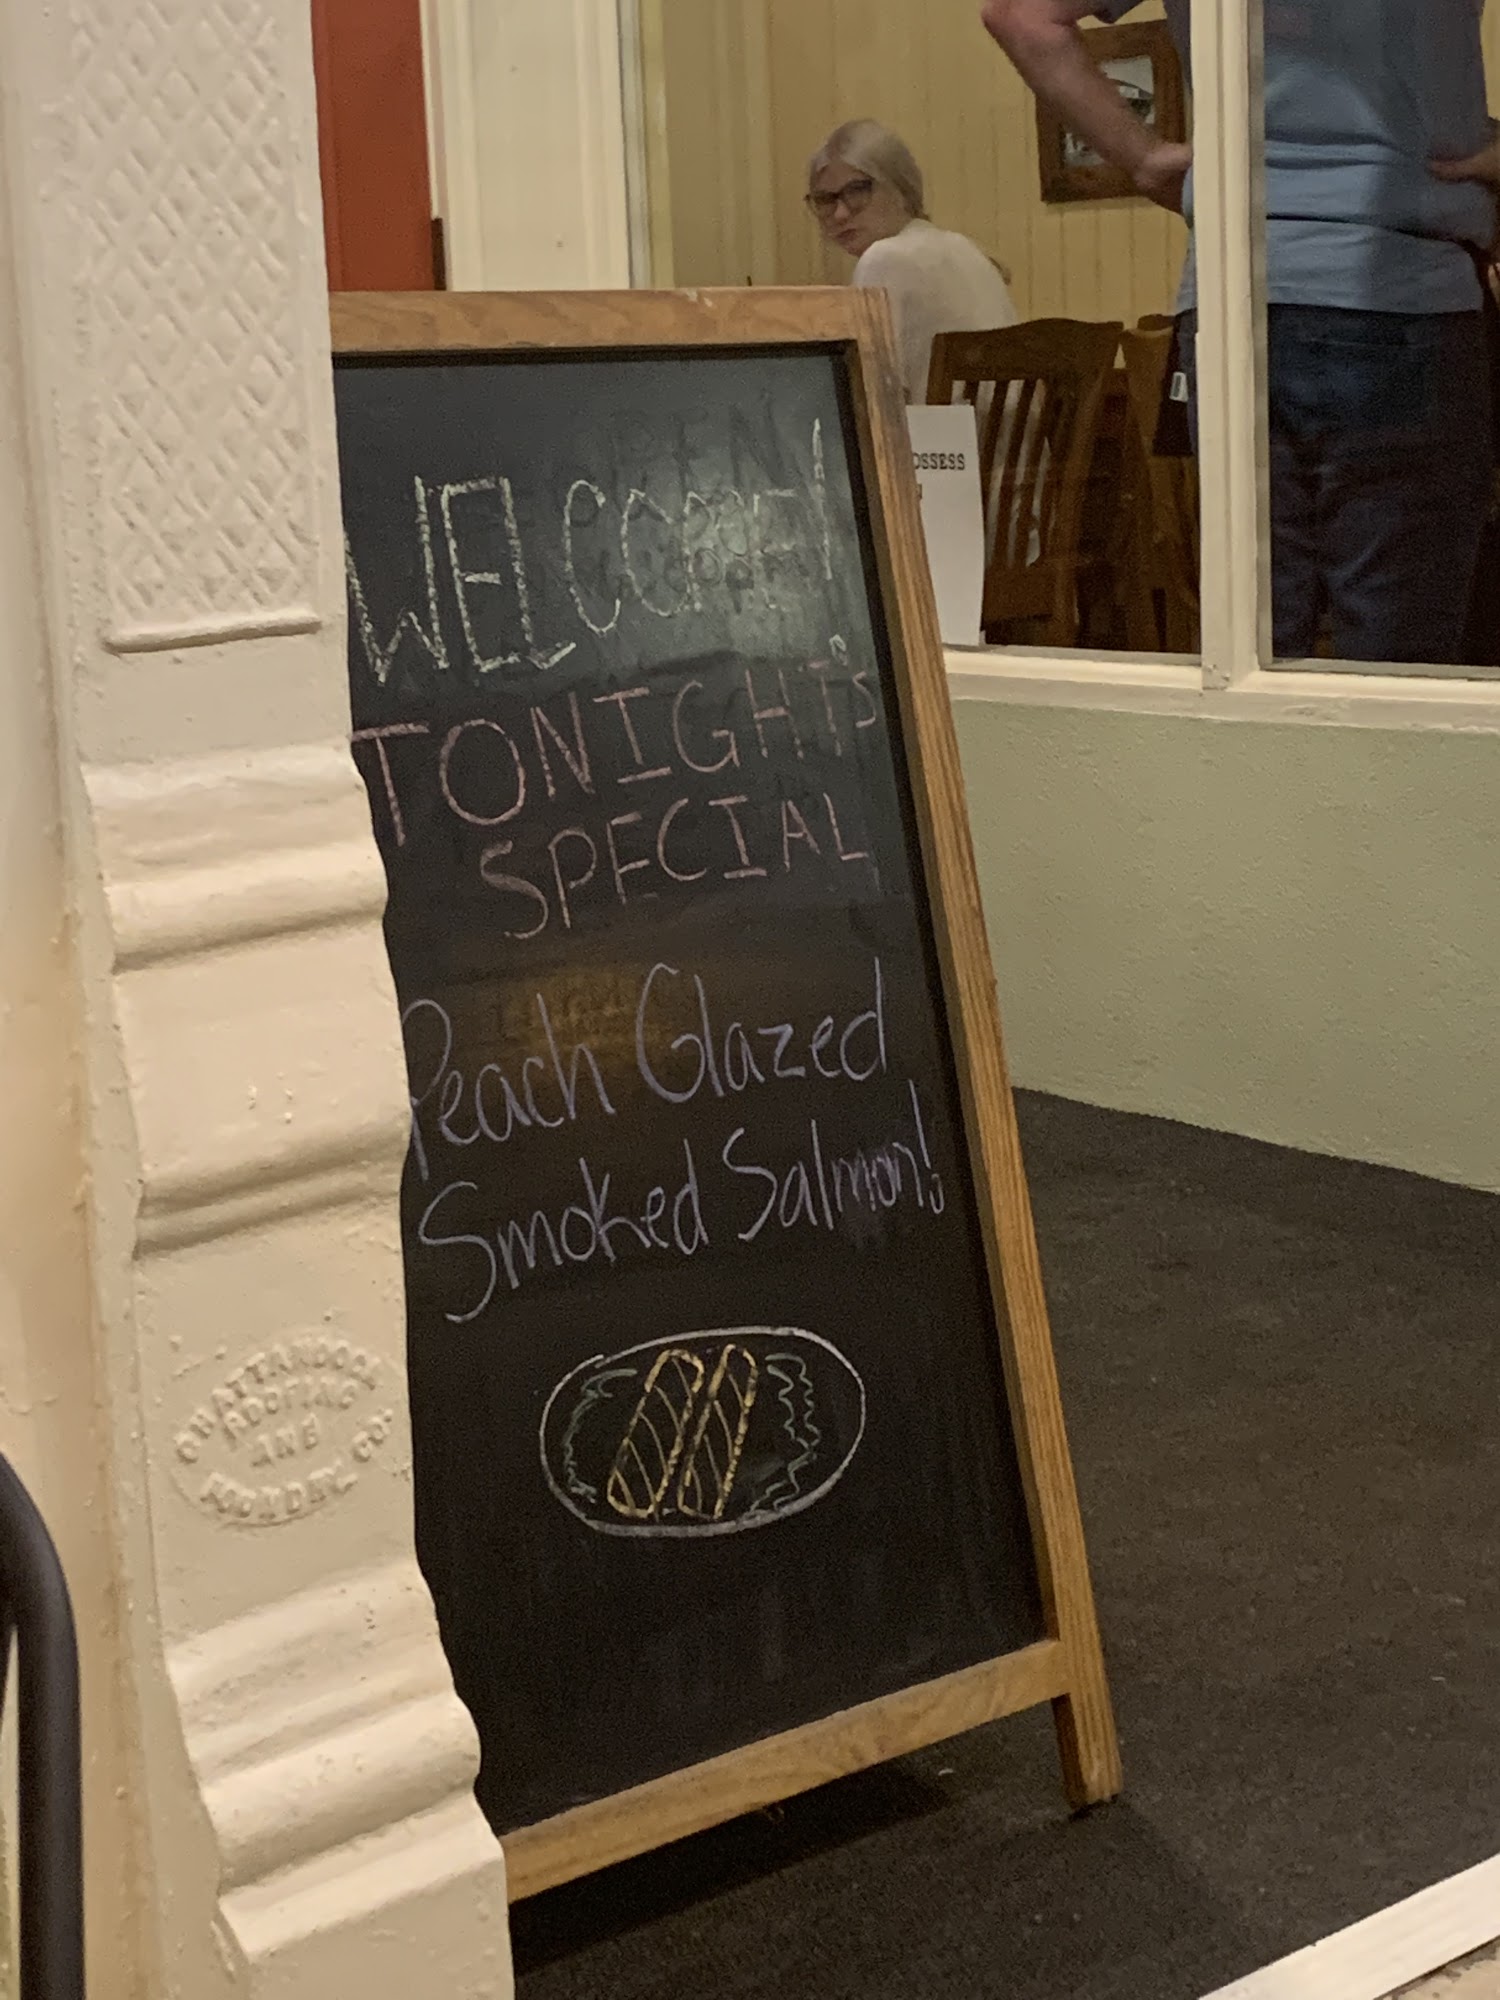 WELCOME!
TONIGHT'S
SPECIAL
Peach Glazed
Smoked Salmon!
OSSESS
CHATTANOOGA
ROOFING
AND
FOUNDRY CO.